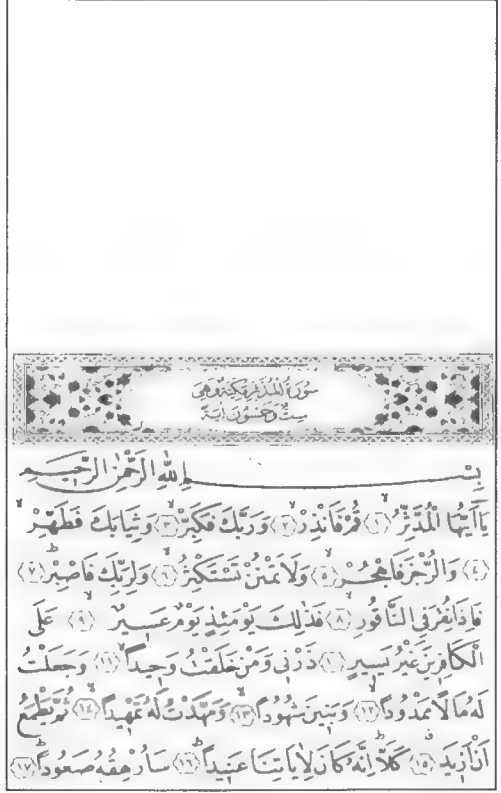 سُورَةُ الْمُدَّثِّرِ مَكِّيَّةٌ وَهِيَ
سِتٌّ وَخَمْسُونَ اٰيَةً
بِسْمِ اللّٰهِ الرَّحْمٰنِ الرَّحِيمِ
يَٓا اَيُّهَا الْمُدَّثِّرُۙ ﴿١﴾ قُمْ فَاَنْذِرْۙ ﴿٢﴾ وَرَبَّكَ فَكَبِّرْۙ ﴿٣﴾ وَثِيَابَكَ فَطَهِّرْۙ
﴿٤﴾ وَالرُّجْزَ فَاهْجُرْۙ ﴿٥﴾ وَلَا تَمْنُنْ تَسْتَكْثِرُۙ ﴿٦﴾ وَلِرَبِّكَ فَاصْبِرْۜ ﴿٧﴾
فَاِذَا نُقِرَ فِي النَّاقُورِۙ ﴿٨﴾ فَذٰلِكَ يَوْمَئِذٍ يَوْمٌ عَسِيرٌۙ ﴿٩﴾ عَلَى
الْكَافِرِينَ غَيْرُ يَسِيرٍ ﴿١٠﴾ ذَرْنِي وَمَنْ خَلَقْتُ وَحِيداًۙ ﴿١١﴾ وَجَعَلْتُ
لَهُ مَالاً مَمْدُوداًۙ ﴿١٢﴾ وَبَنِينَ شُهُوداًۙ ﴿١٣﴾ وَمَهَّدْتُ لَهُ تَمْهِيداًۙ ﴿١٤﴾ ثُمَّ يَطْمَعُ
اَنْ اَزِيدَۗ ﴿١٥﴾ كَلَّاۜ اِنَّهُ كَانَ لِاٰيَاتِنَا عَنِيداًۜ ﴿١٦﴾ سَاُرْهِقُهُ صَعُوداًۜ ﴿١٧﴾